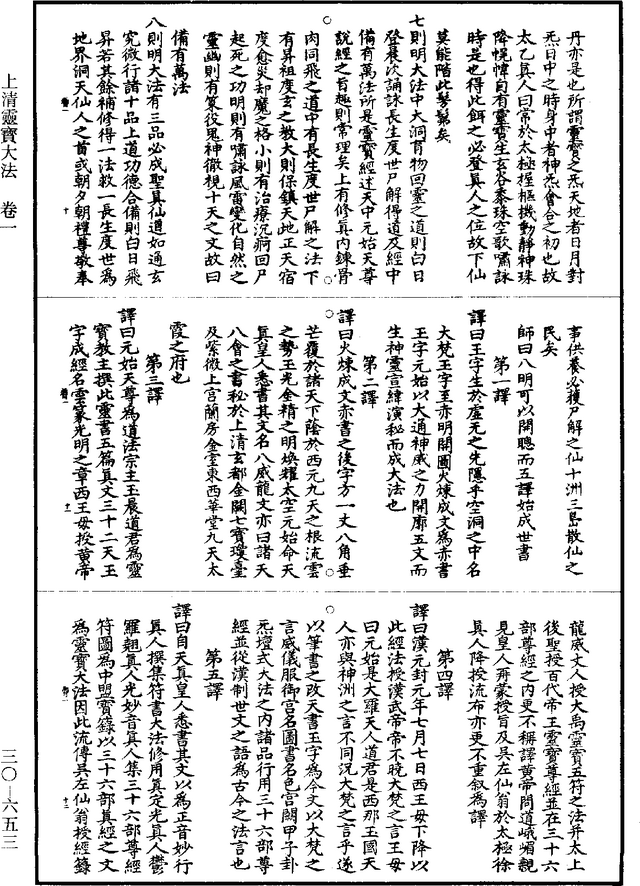 上清靈寶大法　卷一
三〇—六五三
丹亦是也所謂靈寶之炁天地者日月對
炁日中之時身中者神炁會合之初也故
太乙真人曰常於太極握樞機動靜神珠
降幌幃自有靈寶生玄谷黍珠空歌嘯詠
時是也得此餌之必登真人之位故下仙
莫能階此髣髴矣
七則明大法中大洞育物回靈之道則白日
登晨次誦詠長生度世尸解得道及經中
備有萬法所是靈寶經述天中元始天尊
說經之旨趣則常理矣上有修真內鍊骨
肉同飛之道中有長生度世尸解之法下
有昇祖度玄之教大則保鎮天地正天宿
度愈災却魔之格小則有治療沉痾回尸
起死之功明則有嘯詠風雷變化自然之
靈幽則有策役鬼神徹視十天之文故曰
備有萬法
八則明大法有三品必成聖真仙道如通玄
究微行諸十品上道功德合備則白日飛
昇若其餘補修得一法救一長生度世為
地界洞天仙人之首或朝夕朝禮尊敬奉
卷一　十
事供養必獲尸解之仙十洲三島散仙之
民矣
師曰八明可以開聰而五譯始成世書
第一譯
譯曰玉字生於虛无之先隱乎空洞之中名
大梵玉字至赤明開圖火煉成文為赤書
玉字元始以大通神威之力開廓五文而
生神靈宣緯演秘而成大法也
第二譯
譯曰火煉成文亦書之後字方一丈八角垂
芒覆於諸天下蔭於西元九天之根流雲
之勢玉光金精之明煥耀太空元始命天
真皇人悉書其文名八威龍文亦曰諸天
八會之書秘於上清玄都金闕七寶瓊臺
及紫微上宮蘭房金室東西華堂九天太
霞之府也
第三譯
譯曰元始天尊為道法宗主玉晨道君為靈
寶教主撰此靈書五篇真文三十二天玉
字成經名雲篆光明之章西王母授黃帝
卷一　十一
龍威文人授大禹靈寶五符之法并太上
後聖授百代帝王靈寶尊經並在三十六
部尊經之內更不稱譯黃帝問道峨嵋親
見皇人再蒙授旨及吳左仙翁於太極徐
真人降授流布亦更不重叙為譯
第四譯
譯曰漢元封元年七月七日西王母下降以
此經法授漢武帝帝不曉大梵之言王母
曰元始是大羅天人道君是西那玉國天
人亦與神洲之言不同況大梵之言乎遂
以筆書之改天書玉字為今文以大梵之
言威儀服御宮名圖書名色宮闕甲子卦
炁壇式大法之內諸品行用三十六部尊
經並從漢制世文之語為古今之法言也
第五譯
譯曰自天真皇人悉書其文以為正音妙行
真人撰集符書大法修用真定光真人鬱
羅翹真人光妙音真人集三十六部尊經
符圖為中盟寶籙以三十六部真經之文
為靈寶大法因此流傳吳左仙翁授經籙
卷一　十二